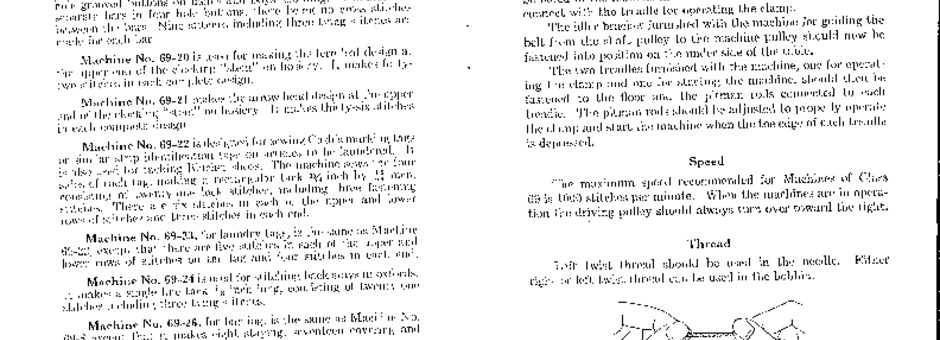 separate bars in four hole buttons, there being no cross stitches
between the bars. Nine stitches including three tying stitches are
made for each bar.
Machine No. 69-20 is used for making the fern leaf design at
the upper end of the clocking "stem" on hosiery. It makes forty-
two stitches in each complete design.
Machine No. 69-21 makes the arrow head design at the upper
end of the clocking "stem" on hosiery. It makes thirty-six stitches
in each complete design.
Machine No. 69-22 is designed for sewing Cash's marking tags
or similar strip identification tape on articles to be laundered. It
is also used for tacking Kitchener shoes. The machine sews the four
sides of each tag, making a rectangular tack inch by inch,
consisting of twenty-one lock stitches, including three fastening
stitches. There are six stitches in each of the upper and lower
rows of stitches and three stitches in each end.
Machine No. 69-23, for laundry tags, is the same as Machine
69-22, except that there are five stitches in each of the upper and
lower rows of stitches on the tag and four stitches in each end.
Machine No. 69-24 is used for stitching back stays in oxfords.
It makes a single line tack inch long, consisting of twenty-one
stitches including three tying stitches.
Machine No. 69-26, for is the same as Machine No.
except that it makes eight staying, seventeen covering, and
connect with the treadle for operating the clamp.
The idler bracket furnished with the machine for guiding the
belt from the shaft pulley to the machine pulley should now be
fastened into position on the under side of the table.
The two treadles furnished with the machine, one for operat-
ing the clamp and one for starting the machine, should then be
fastened to the floor and the pitman rods connected to each
treadle. The pitman rods should be adjusted to properly operate
the clamp and start the machine when the toe edge of each treadle
is depressed.
Speed
The maximum speed recommended for Machines of Class
69 is 1000 stitches per minute. When the machines are in opera-
tion the driving pulley should always turn over toward the right.
Thread
Left twist thread should be used in the needle. Either
right or left twist thread can be used in the bobbin.